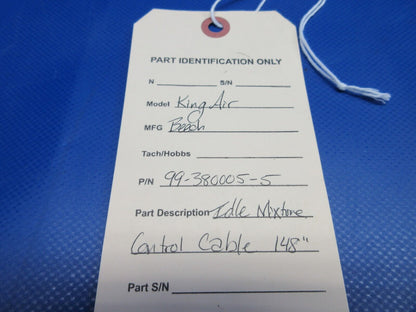 PART IDENTIFICATION ONLY
N S/N
Model King Air
MFG Beech
Tach/Hobbs
P/N 99-380005-5
Part Description Idle Mixture
Control Cable 148"
Part S/N